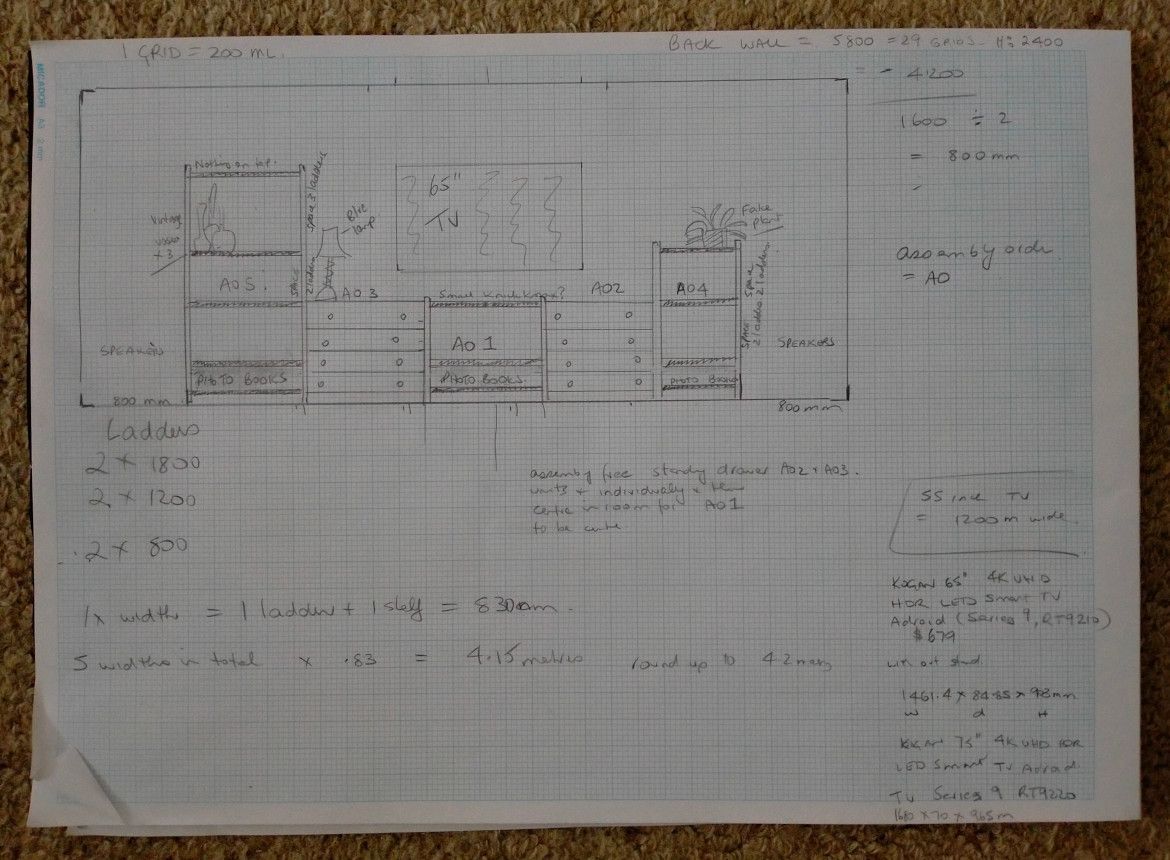 1 GRID = 200 ML.
BACK WALL = 5800 = 29 GRIDS. H: 2400
= - 4200
1600 ÷ 2
= 800 mm
MICADOR A3 2mm
Nothing on top.
Space 3 ladders
Vintage
vases
x 3
Blue
lamp
65"
TV
Fake
plant
A05.
Space
2 ladders
A03
Small knick knax?
A02
A04
Space
2 ladders
Space
2 ladders
assembly order
= AO
SPEAKERS
A01
SPEAKERS
PHOTO BOOKS
PHOTO BOOKS.
PHOTO BOOKS
800 mm
800 mm
Ladders
2 x 1800
2 x 1200
2 x 800
assembly free standing drawer A02 + A03.
units + individualy + then
centre in room for A01
to be centre
55 inch TV
= 1200m wide.
1x widths = 1 ladder + 1 shelf = 830mm.
5 widths in total x .83 = 4.15 metres round up to 4.2
KOGAN 65" 4K UHD
HDR LED Smart TV
Adroid (Series 9, RT9210)
$679
with out stand
1461.4 x 84.85 x
W d H
KOGAN 75" 4K UHD HDR
LED Smart TV Adroid
TV Series 9 RT9220
x 70 x 965m